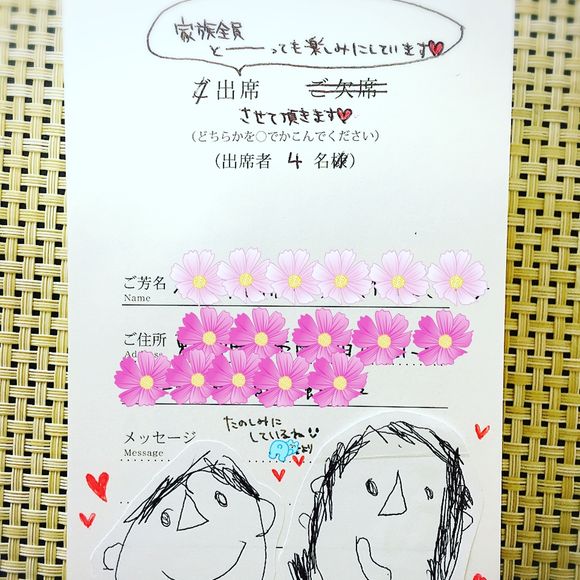 家族全員
と――っても楽しみにしています
ご出席 ご欠席
させて頂きます
(どちらかを○でかこんでください)
(出席者 4 名様)
ご芳名
Name
ご住所
Address
メッセージ
Message
たのしみに
しているね
より